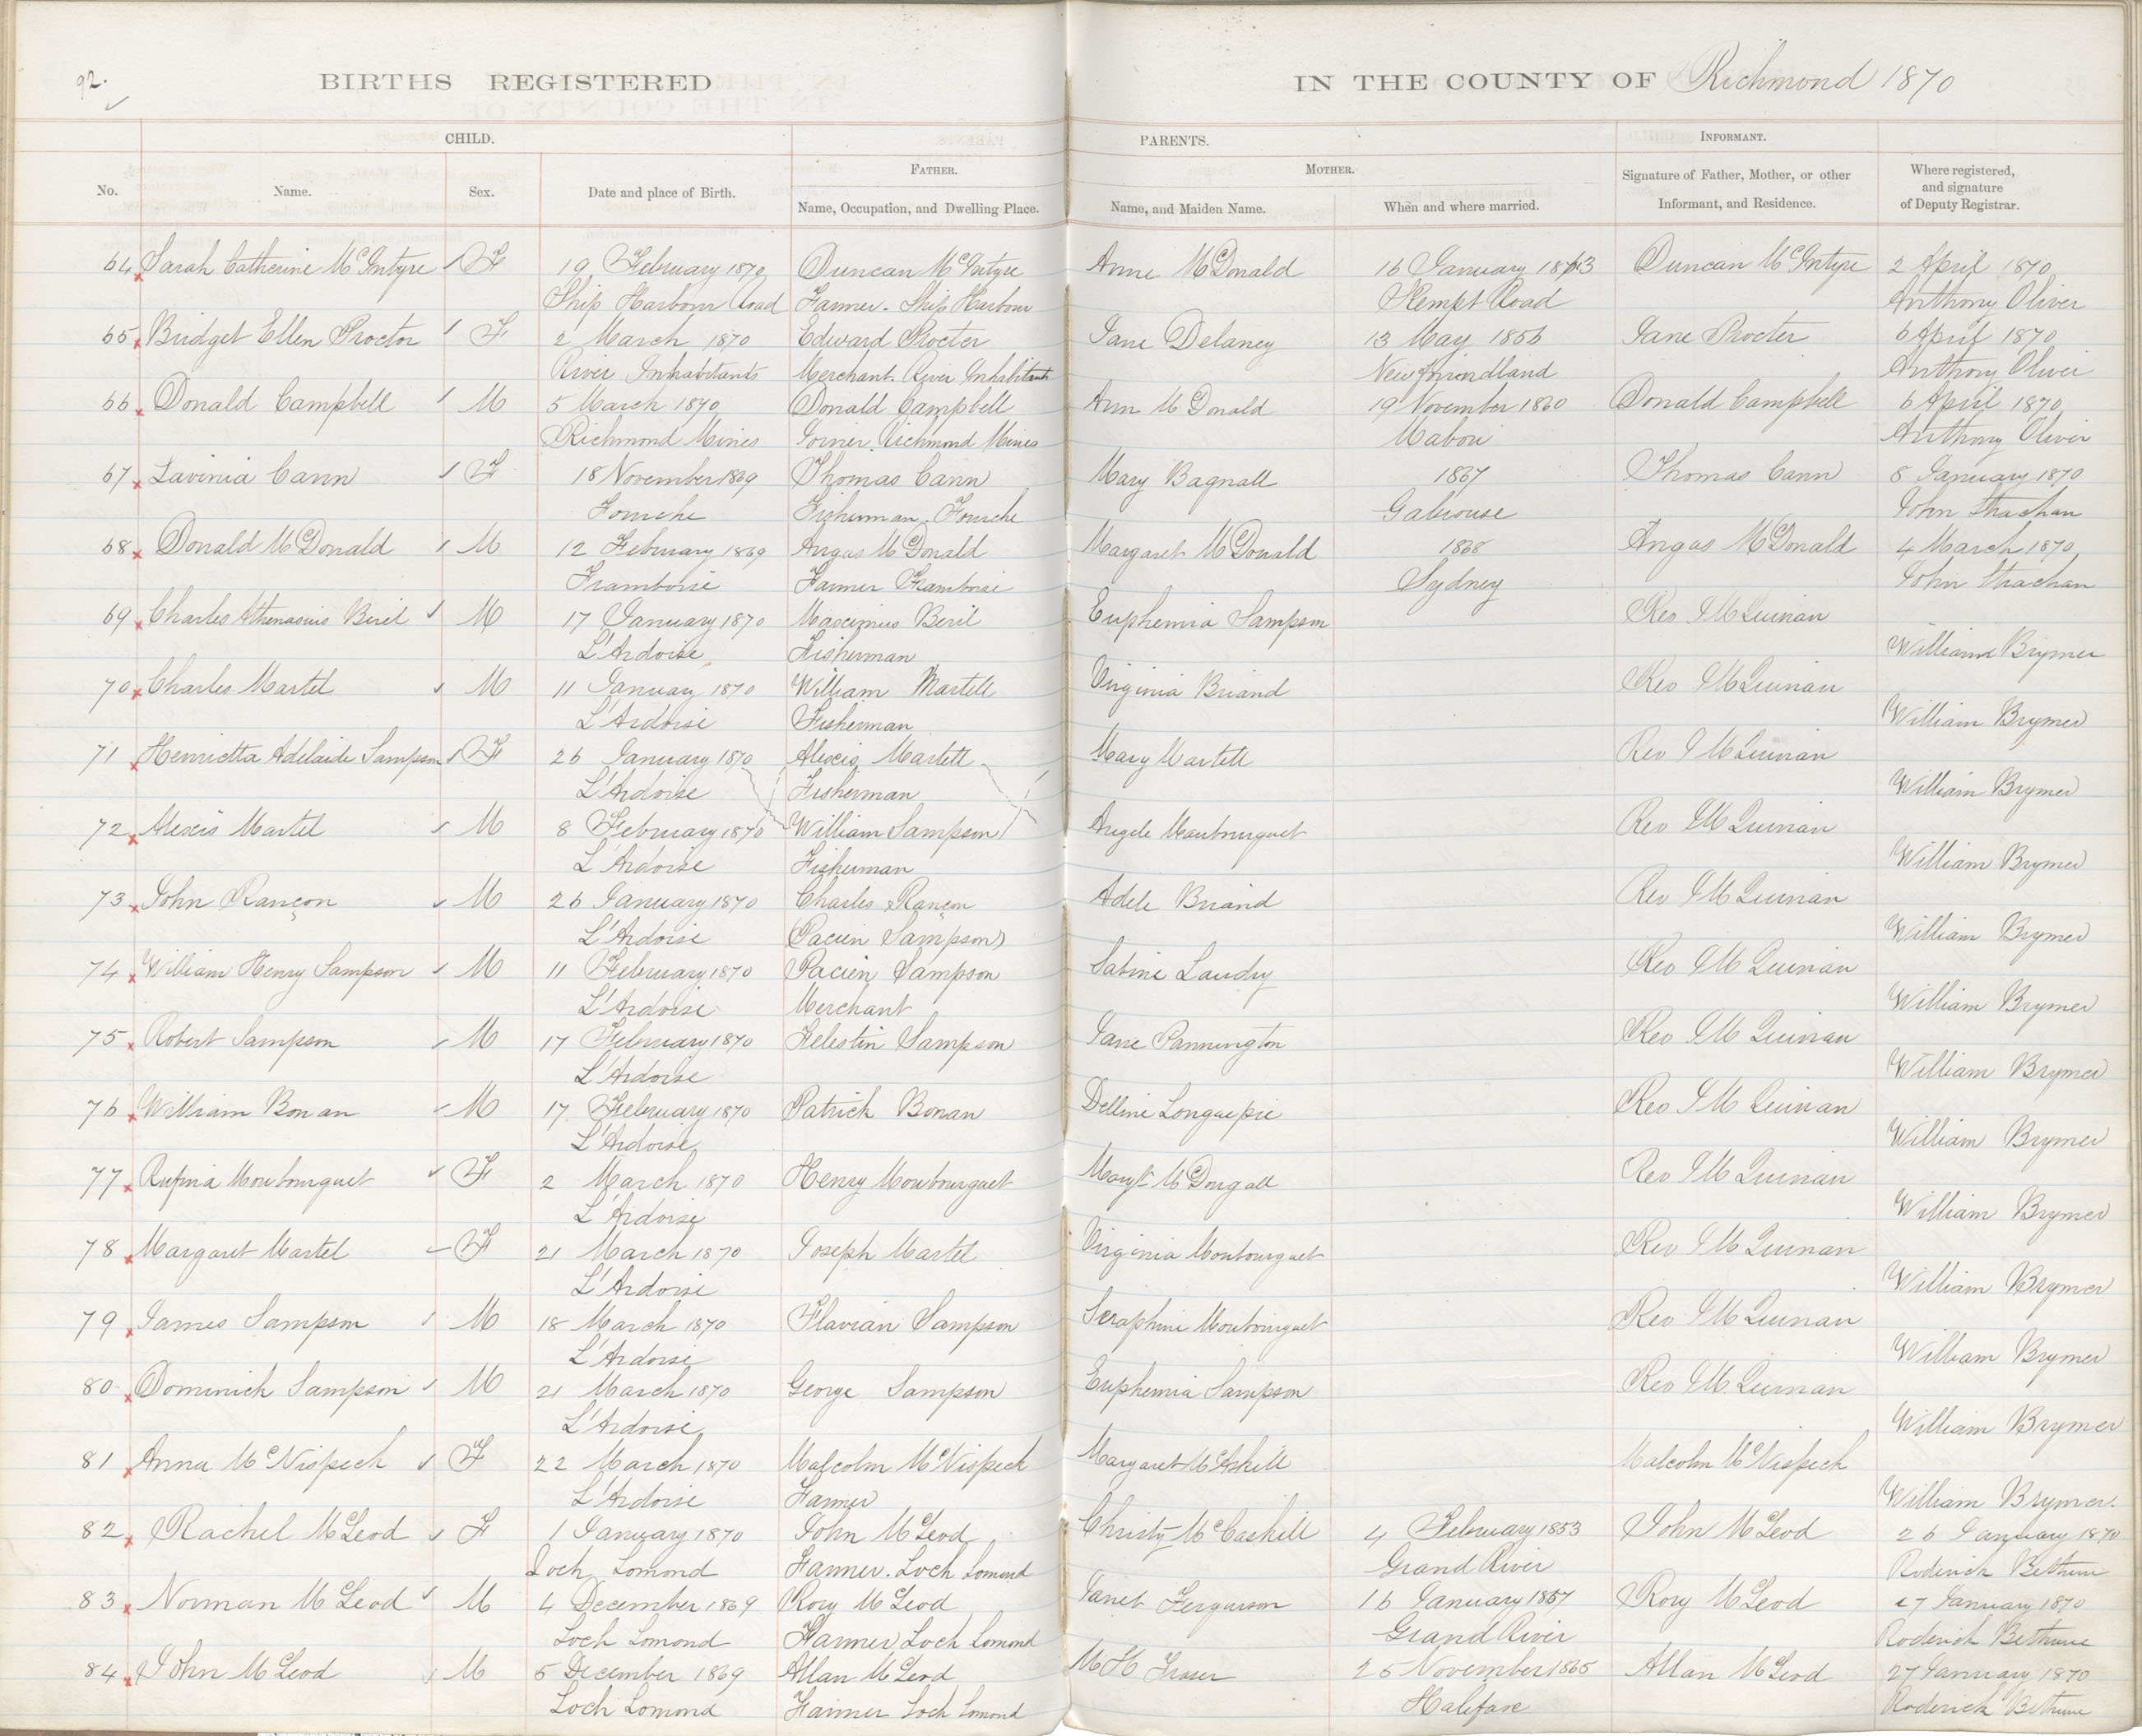 92.
BIRTHS REGISTERED IN THE COUNTY OF Richmond 1870
CHILD. PARENTS. INFORMANT.
FATHER. MOTHER.
No. Name. Sex. Date and place of Birth. Name, Occupation, and Dwelling Place. Name, and Maiden Name. When and where married. Signature of Father, Mother, or other Informant, and Residence. Where registered, and signature of Deputy Registrar.
64 Sarah Catherine McIntyre F 19 February 1870 Duncan McIntyre Anne McDonald 16 January 1863 Duncan McIntyre 2 April 1870
Ship Harbour Road Farmer. Ship Harbour Kempt Road Anthony Oliver
65 Bridget Ellen Proctor F 2 March 1870 Edward Procter Jane Delaney 13 May 1856 Jane Procter 6 April 1870
River Inhabitants Merchant. River Inhabitants Newfoundland Anthony Oliver
66 Donald Campbell M 5 March 1870 Donald Campbell Ann McDonald 19 November 1860 Donald Campbell 6 April 1870
Richmond Mines Joiner. Richmond Mines Mabou Anthony Oliver
67 Lavinia Cann F 18 November 1869 Thomas Cann Mary Bagnall 1867 Thomas Cann 8 January 1870
Fourche Fisherman. Fourche Gabrouse John Strachan
68 Donald McDonald M 12 February 1869 Angus McDonald Margaret McDonald 1868 Angus McDonald 4 March 1870
Framboise Farmer Framboise Sydney John Strachan
69 Charles Athenasius Beril M 17 January 1870 Maximus Beril Euphemia Sampson Rev J McQuinan
L'Ardoise Fisherman William Brymer
70 Charles Martel M 11 January 1870 William Martell Virginia Briand Rev J McQuinan
L'Ardoise Fisherman William Brymer
71 Henrietta Adelaide Sampson F 26 January 1870 Alexis Martell Mary Martell Rev J McQuinan
L'Ardoise Fisherman William Brymer
72 Alexis Martel M 8 February 1870 William Sampson Angele Moubourquet Rev J McQuinan
L'Ardoise Fisherman William Brymer
73 John Rançon M 26 January 1870 Charles Rançon Adele Briand Rev J McQuinan
L'Ardoise (Pacien Sampson) William Brymer
74 William Henry Sampson M 11 February 1870 Pacien Sampson Sabine Landry Rev J McQuinan
L'Ardoise Merchant William Brymer
75 Robert Sampson M 17 February 1870 Felestin Sampson Jane Pannington Rev J McQuinan
L'Ardoise William Brymer
76 William Bonan M 17 February 1870 Patrick Bonan Delline Longuepie Rev J McQuinan
L'Ardoise William Brymer
77 Rufina Moubourquet F 2 March 1870 Henry Moubourquet Mary McDougall Rev J McQuinan
L'Ardoise William Brymer
78 Margaret Martel F 21 March 1870 Joseph Martel Virginia Moubourquet Rev J McQuinan
L'Ardoise William Brymer
79 James Sampson M 18 March 1870 Flavian Sampson Seraphine Moubourquet Rev J McQuinan
L'Ardoise William Brymer
80 Dominick Sampson M 21 March 1870 George Sampson Euphemia Sampson Rev J McQuinan
L'Ardoise William Brymer
81 Anna McNispech F 22 March 1870 Malcolm McNispech Margaret McAskill Malcolm McNispech
L'Ardoise Farmer William Brymer.
82 Rachel McLeod F 1 January 1870 John McLeod Christy McCaskill 4 February 1853 John McLeod 26 January 1870
Loch Lomond Farmer. Loch Lomond Grand River Roderick Bethune
83 Norman McLeod M 4 December 1869 Rory McLeod Janet Ferguson 16 January 1857 Rory McLeod 27 January 1870
Loch Lomond Farmer Loch Lomond Grand River Roderick Bethune
84 John McLeod M 5 December 1869 Allan McLeod Fraser 25 November 1865 Allan McLeod 27 January 1870
Loch Lomond Farmer Loch Lomond Halifax Roderick Bethune